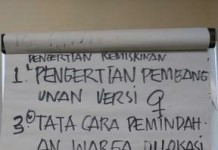 PENGERTIAN KEMISKINAN
1. PENGERTIAN PEMBANG
UNAN VERSI
3. TATA CARA PEMINDAH-
AN WARGA DILOKASI